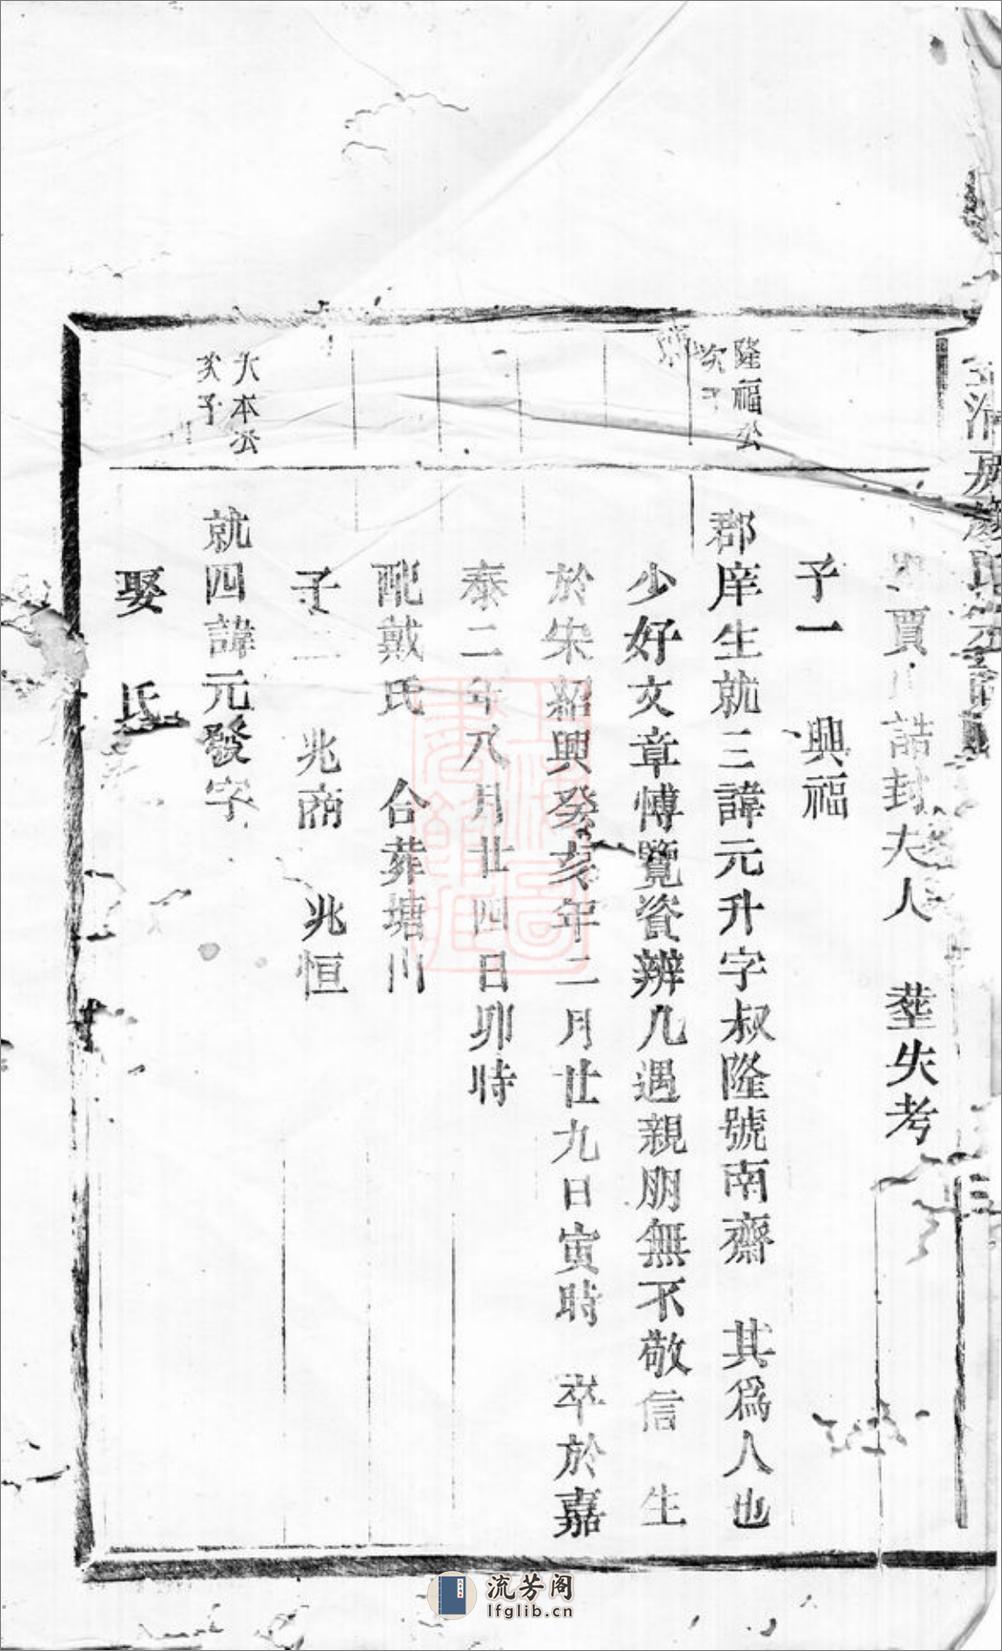 賈 誥封夫人 塟失考
子一 興福
隆福公
次子
郡庠生就三諱元升字叔隆號南齋 其爲人也
少好文章博覽資辨凡遇親朋無不敬信 生
於宋紹興癸亥年二月廿九日寅時 卒於嘉
泰二年八月廿四日卯時
配戴氏 合葬塘山
子二 兆商 兆恒
大本公
次子
就四諱元發字
娶 氏
流芳阁
lfglib.cn